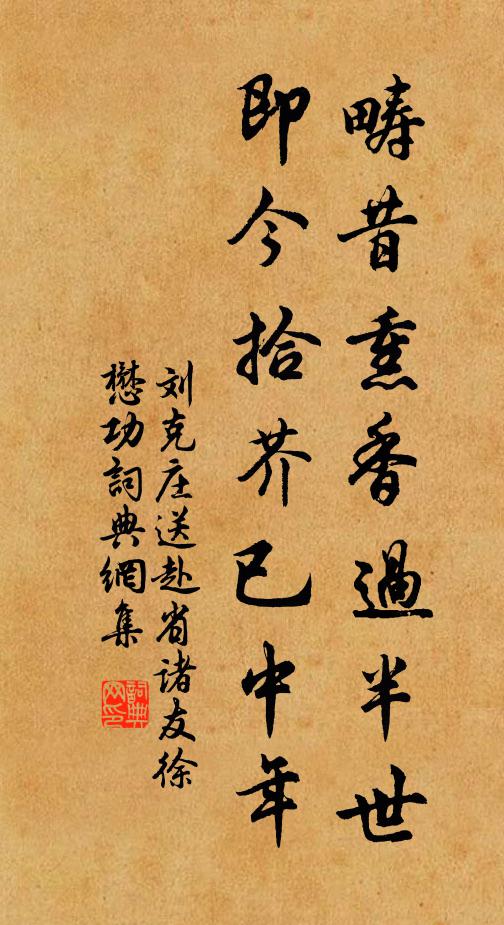 畴昔熏香過半世
即今拾芥已中年
刘克庄送赴省诸友徐
懋功詞典網集
詞典網印